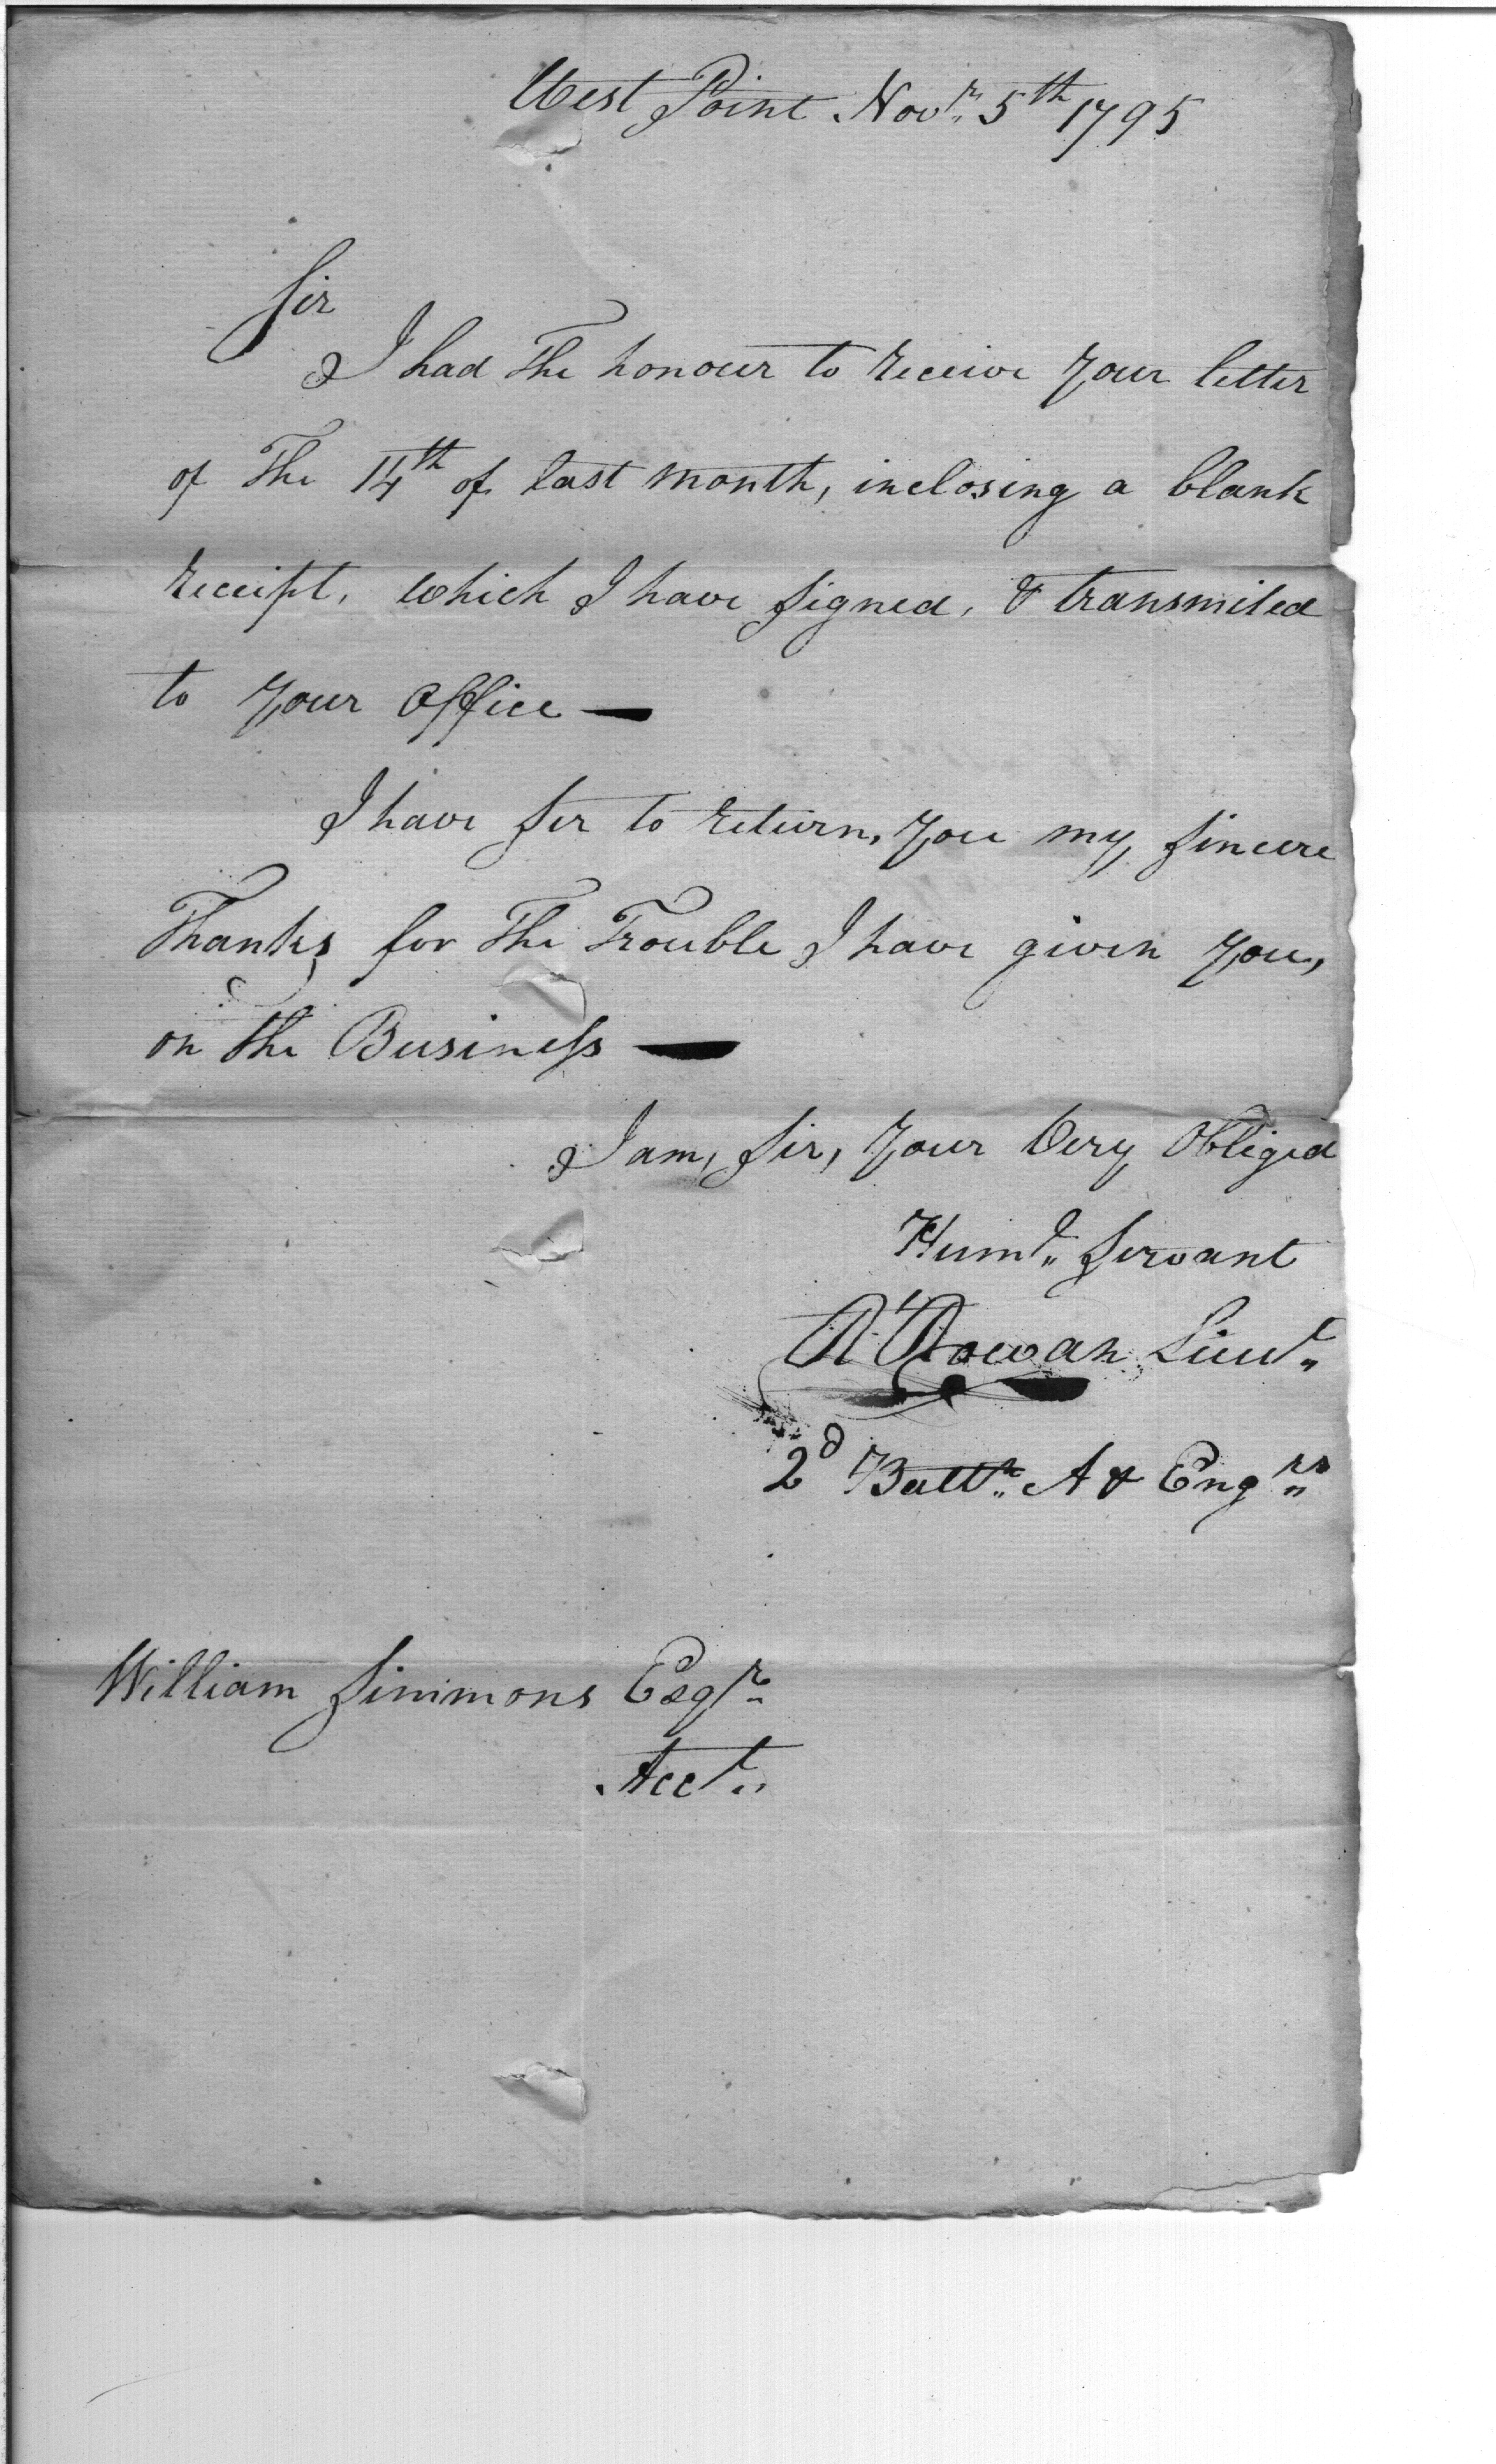 West Point Novr. 5th 1795
Sir
I had The honour to receive your letter
of The 14th of last month, inclosing a blank
receipt, which I have signed, & transmited
to your Office —
I have Sir to return, you my sincere
Thanks for The Trouble I have given you,
on The Business —
I am, Sir, your Very Obliged
Humb. Servant
R Rowan Lieut.
2d Battn. A & Engrs.
William Simmons Esqr.
Acct.